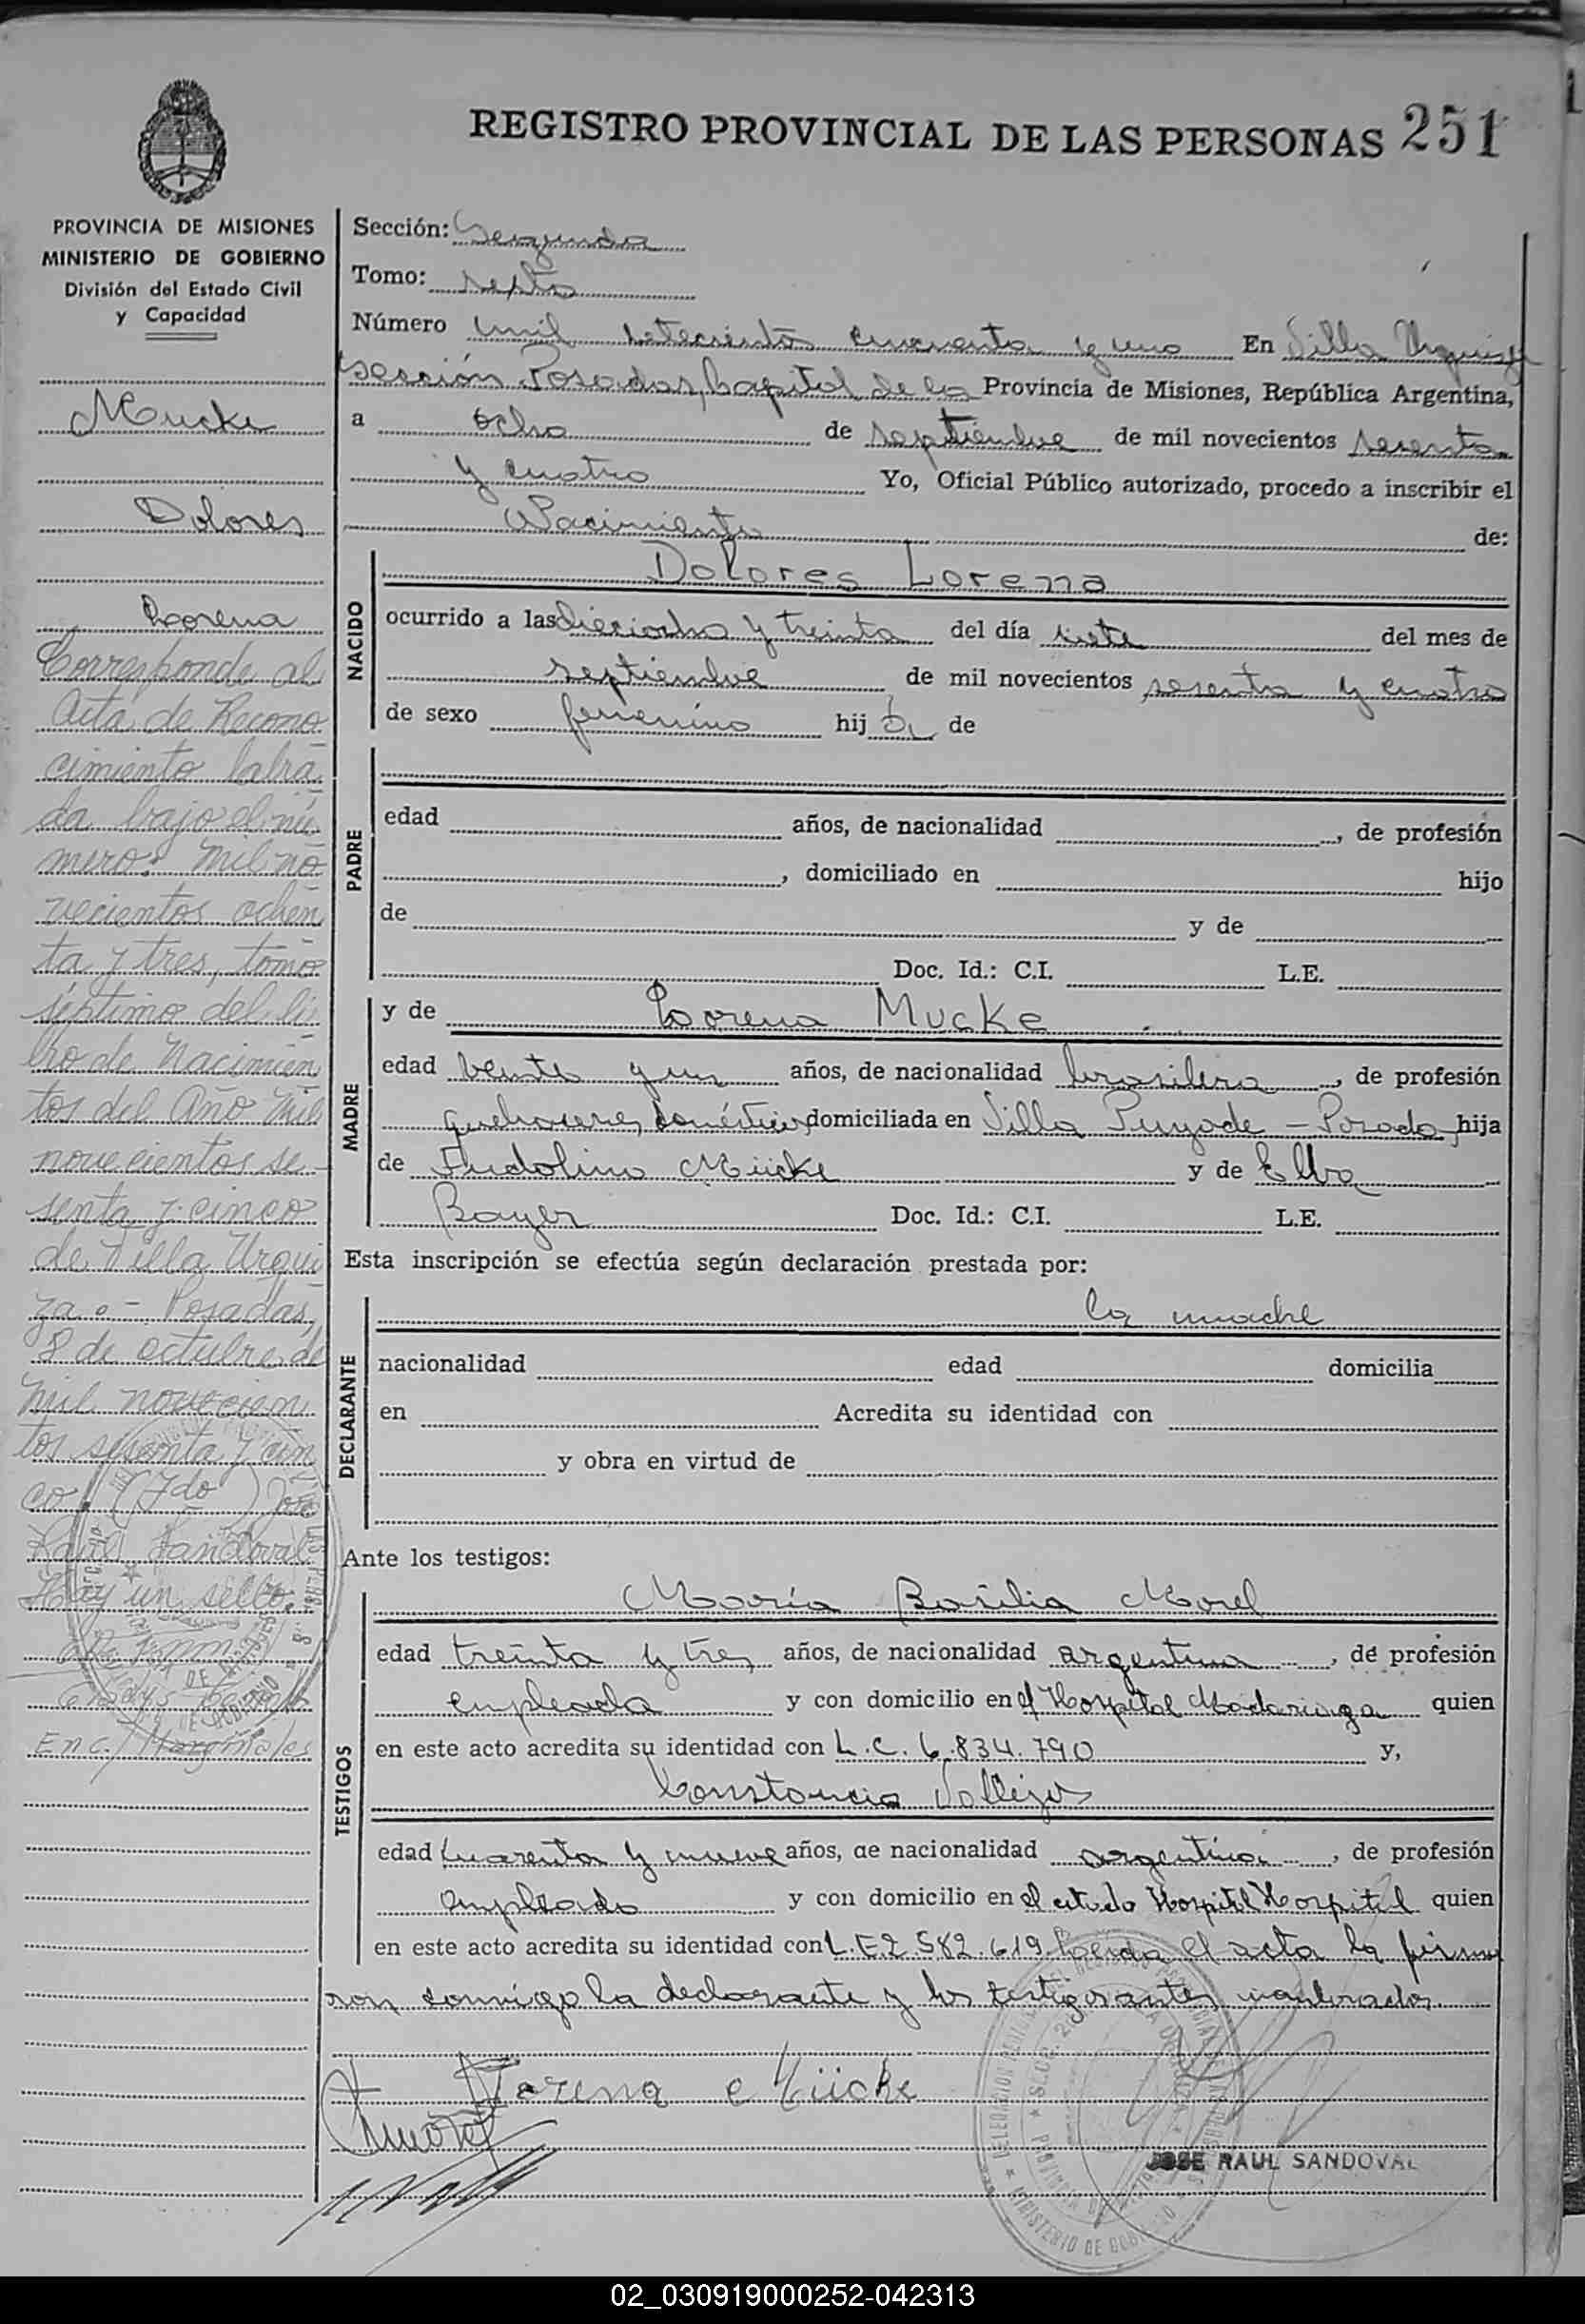 REGISTRO PROVINCIAL DE LAS PERSONAS 251
PROVINCIA DE MISIONES
MINISTERIO DE GOBIERNO
División del Estado Civil
y Capacidad
Mucke
Dolores
Lorena
Corresponde al
Acta de Recono
cimiento labra
da bajo el nú
mero: Mil no
vecientos ochen
ta y tres, tomo
séptimo del li
bro de Nacimien
tos del Año Mil
novecientos se
senta y cinco
de Villa Urqui
za.- Posadas,
8 de octubre de
mil novecien
tos sesenta y cin
co. (Fdo) José
Raúl Sandoval
Hay un sello.
Enc. Marginales
Sección: Segunda
Tomo: sexto
Número mil setecientos cincuenta y uno En Villa Urquiza
sección Posadas, Capital de la Provincia de Misiones, República Argentina,
a ocho de septiembre de mil novecientos sesenta
y cuatro Yo, Oficial Público autorizado, procedo a inscribir el
Nacimiento de:
NACIDO
Dolores Lorena
ocurrido a las dieciocho y treinta del día siete del mes de
septiembre de mil novecientos sesenta y cuatro
de sexo femenino hij a de
PADRE
edad años, de nacionalidad , de profesión
, domiciliado en hijo
de y de
Doc. Id.: C.I. L.E.
MADRE
y de Lorena Mucke
edad veinte y un años, de nacionalidad brasilera , de profesión
quehaceres domésticos domiciliada en Villa Puyade - Posadas hija
de Fridolino Mücke y de Elba
Bayer Doc. Id.: C.I. L.E.
Esta inscripción se efectúa según declaración prestada por:
DECLARANTE
la madre
nacionalidad edad domicilia
en Acredita su identidad con
y obra en virtud de
Ante los testigos:
TESTIGOS
María Basilia Morel
edad treinta y tres años, de nacionalidad argentina , de profesión
empleada y con domicilio en el Hospital Madariaga quien
en este acto acredita su identidad con L.C. 6.834.790 y,
Constancio Vallejos
edad cuarenta y nueve años, de nacionalidad argentina , de profesión
empleado y con domicilio en el citado Hospital Hospital quien
en este acto acredita su identidad con L.E 2.582.619. Leída el acta la firma
ron conmigo la declarante y los testigos antes nombrados.
Lorena Mücke
JOSE RAUL SANDOVAL
02_030919000252-042313